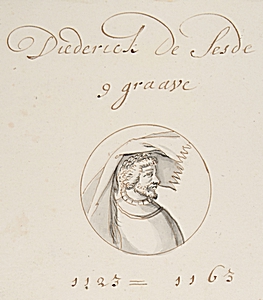 Diederick De Sesde
9 graave
1123 = 1163